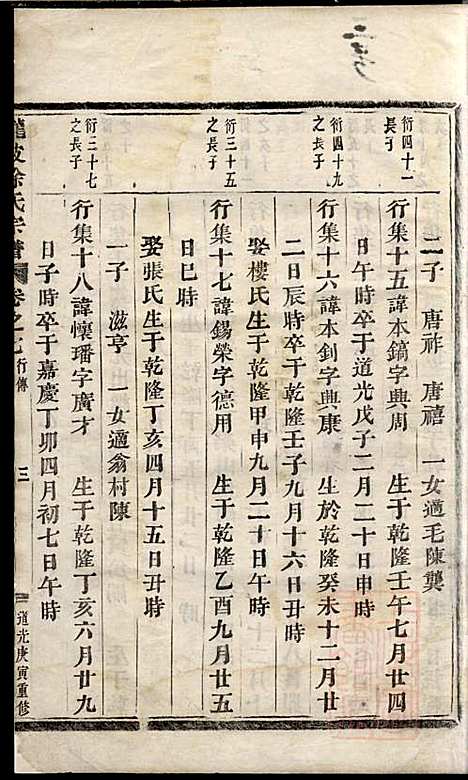 二子　唐祚　唐禧　一女適毛陳龔
衍四十一之長子
行集十五諱本鎬字典周　生于乾隆壬午七月廿四
日午時卒于道光戊子二月二十日申時
衍四十九之長子
行集十六諱本釗字典康　生於乾隆癸未十二月廿
二日辰時卒于乾隆壬子九月十六日丑時
娶樓氏生于乾隆甲申九月二十日午時
衍三十五之長子
行集十七諱錫榮字德用　生于乾隆乙酉九月廿五
日巳時
娶張氏生于乾隆丁亥四月十五日丑時
一子　滋亨　一女適翁村陳
衍三十七之長子
行集十八諱懷璠字廣才　生于乾隆丁亥六月廿九
日子時卒于嘉慶丁卯四月初七日午時
徐氏宗譜　卷之七　行傳　三　道光庚寅重修